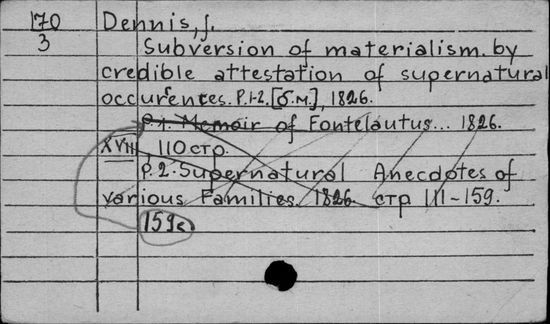 170 Dennis, J.
3 Subversion of materialism. by
credible attestation of supernatural
occurences. P.1-2. [б.м.], 1826.
P.1. Memoir of Fontelautus... 1826.
XVIII, 110 стр.
P.2. Supernatural Anecdotes of
various Families. 1826. стр 111-159.
159 с